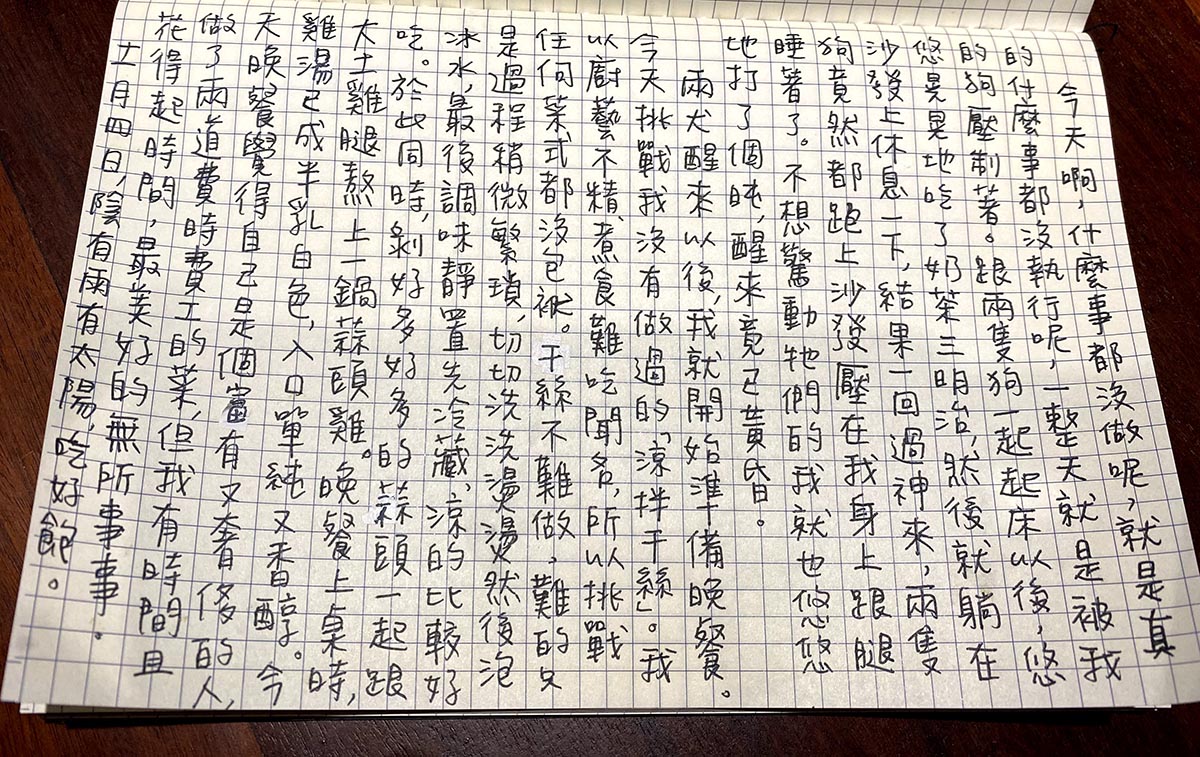 今天啊，什麼事都沒做呢，就是真
的什麼事都沒執行呢，一整天就是被我
的狗壓制著。跟兩隻狗一起起床以後，悠
悠晃晃地吃了奶茶三明治，然後就躺在
沙發上休息一下，結果一回過神來，兩隻
狗竟然都跑上沙發壓在我身上跟腿
睡著了。不想驚動牠們的我就也悠悠
地打了個盹，醒來竟已黃昏。
兩犬醒來以後，我就開始準備晚餐。
今天挑戰我沒有做過的「涼拌干絲」。我
以廚藝不精、煮食難吃聞名，所以挑戰
任何菜式都沒包袱。干絲不難做，難的只
是過程稍微繁瑣，切切洗洗燙燙然後泡
冰水，最後調味靜置先冷藏，涼的比較好
吃。於此同時，剝好多好多的蒜頭一起跟
大土雞腿熬上一鍋蒜頭雞。晚餐上桌時，
雞湯已成半乳白色，入口單純又香醇。今
天晚餐覺得自己是個富有又奢侈的人，
做了兩道費時費工的菜，但我有時間且
花得起時間，最美好的無所事事。
十一月四日，陰有雨有太陽，吃好飽。